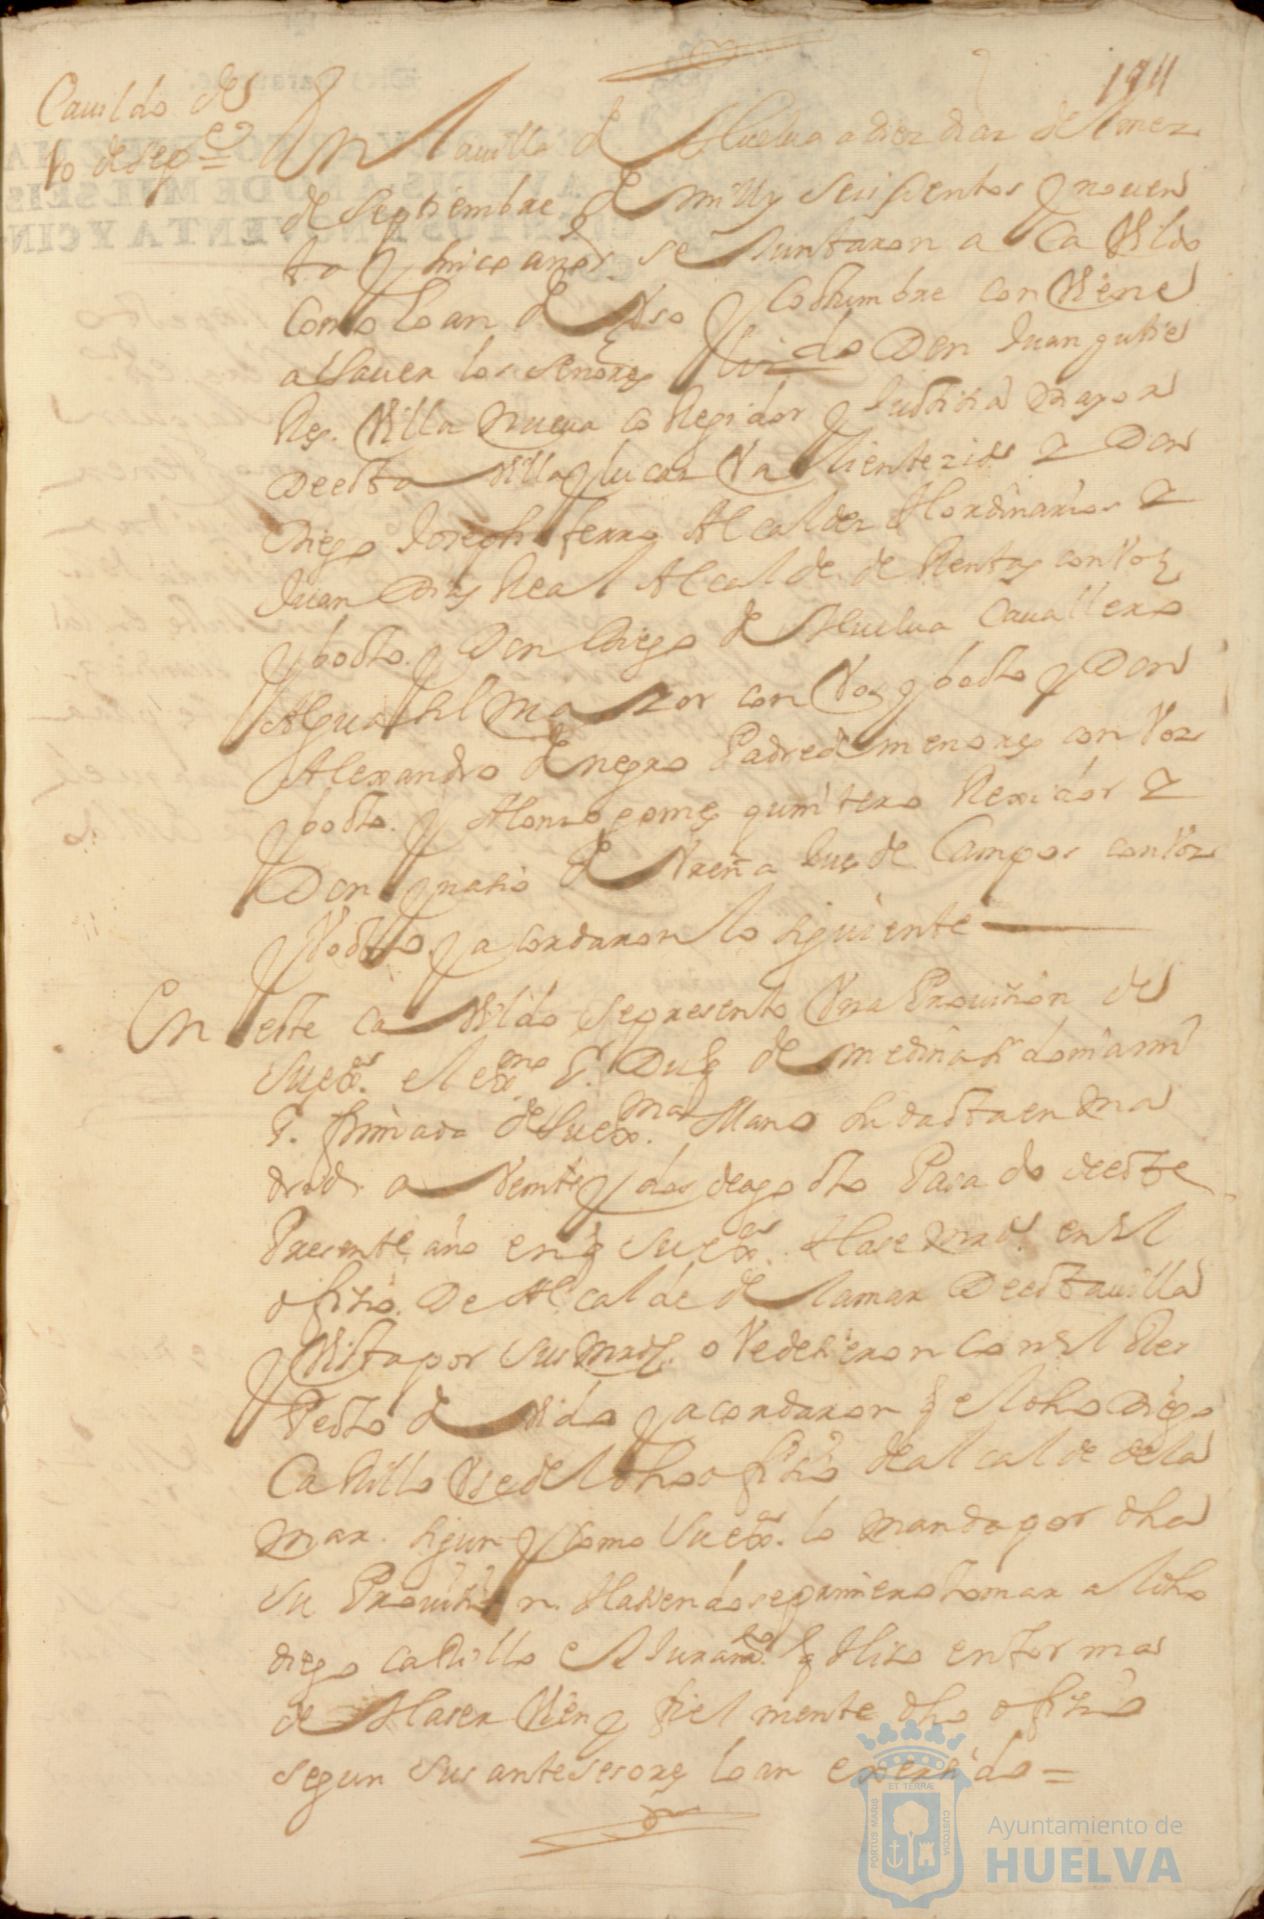 194
Cauildo de
10 de sepe
En la uilla de Huelua a diez dias del mez
de septiembre de mill y seissientos y nouen
ta y sinco años se Juntaron a Ca Vildo
Como lo an de Vso y Costumbre conViene
a Sauer los señores Lizdo Don Juan gutie
Res. Villa Nueua coRegidor y Justisia mayor
De esta Villa y lucas Va liente y Don
Diego Joseph ferro Alcaldes Hordinarios y
Juan Dias Real Alcalde de Rentas con Voz
y boto. y Don Diego de Huelua Cauallero
Alguasil Mayor con Voz y boto y Don
Alexandro de negro Padre de menores con Voz
y boto. y Alonso gomes quintero Rexidor y
Don Ygnasio de Vreña Jues de Campos con Voz
y Voto y acordaron lo siguiente
En este Ca Vildo se presento Vna Prouision de
Su exa. el exmo Sr. Duq de medina sidonia mi
Sr. firmada de Su exa. Mano su dacta en Ma
drid a Veinte y dos de agosto Pasado de este
Presente año en q Su exa. Hase mrd. en el
ofisio. De Alcalde de la mar De esta uilla
y Vista por sus mrds. oVedesieron con el Res
Pecto deVido y acordaron q el dho Diego
Castillo Vse del dho ofisio de alcalde de la
mar. segun y como Su exa. lo manda por dha
su Prouision. Hasiendose primero tomar al dho
diego castillo el Juramto. q Hiso en forma
de Haser Vien y fielmente dho ofisio
segun sus antesesores lo an exersido =
PORTUS MARIS
ET TERRÆ
CUSTODIA
Ayuntamiento de
HUELVA